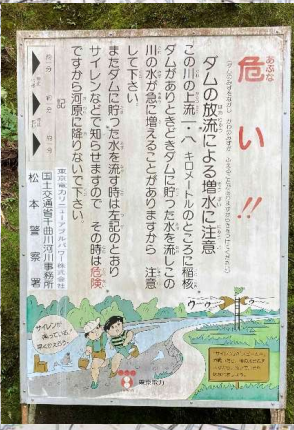 危い!!
あぶな
ダムの放流による増水に注意
この川の上流一・八キロメートルのところに稲核
ダムがありときどきダムに貯った水を流しこの
川の水が急に増えることがありますから 注意
して下さい
またダムに貯った水を流す時は左記のとおり
サイレンなどで知らせますので その時は危険
ですから河原に降りないで下さい
記
東京電力リニューアブルパワー株式会社
国土交通省千曲川河川事務所
松本警察署
サイレンが
鳴っている
早くかえろう
東京電力